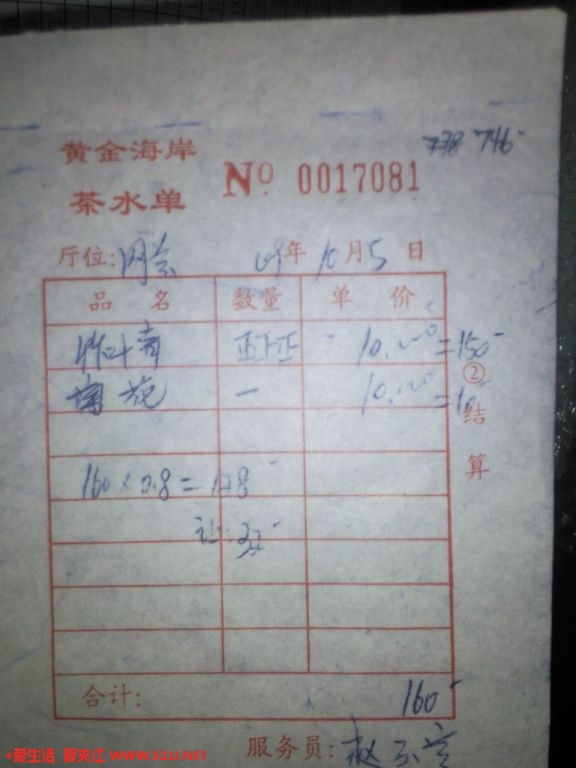 778 746-
黄金海岸
茶水单
No 0017081
厅位: 网会 09年10月5日
品名 数量 单价
竹叶青 正下正 10.00 =150-
菊花 一 10.00 =10
②结算
160×0.8=128-
让:32-
合计: 160-
服务员:赵
爱生活 爱夹江 WWW.SCJJ.NET